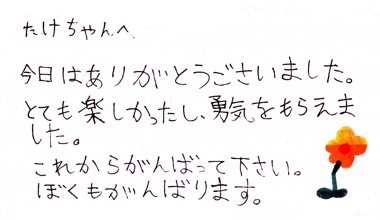 たけちゃんへ
今日はありがとうございました。
とても楽しかったし、勇気をもらえま
した。
これからがんばって下さい。
ぼくもがんばります。